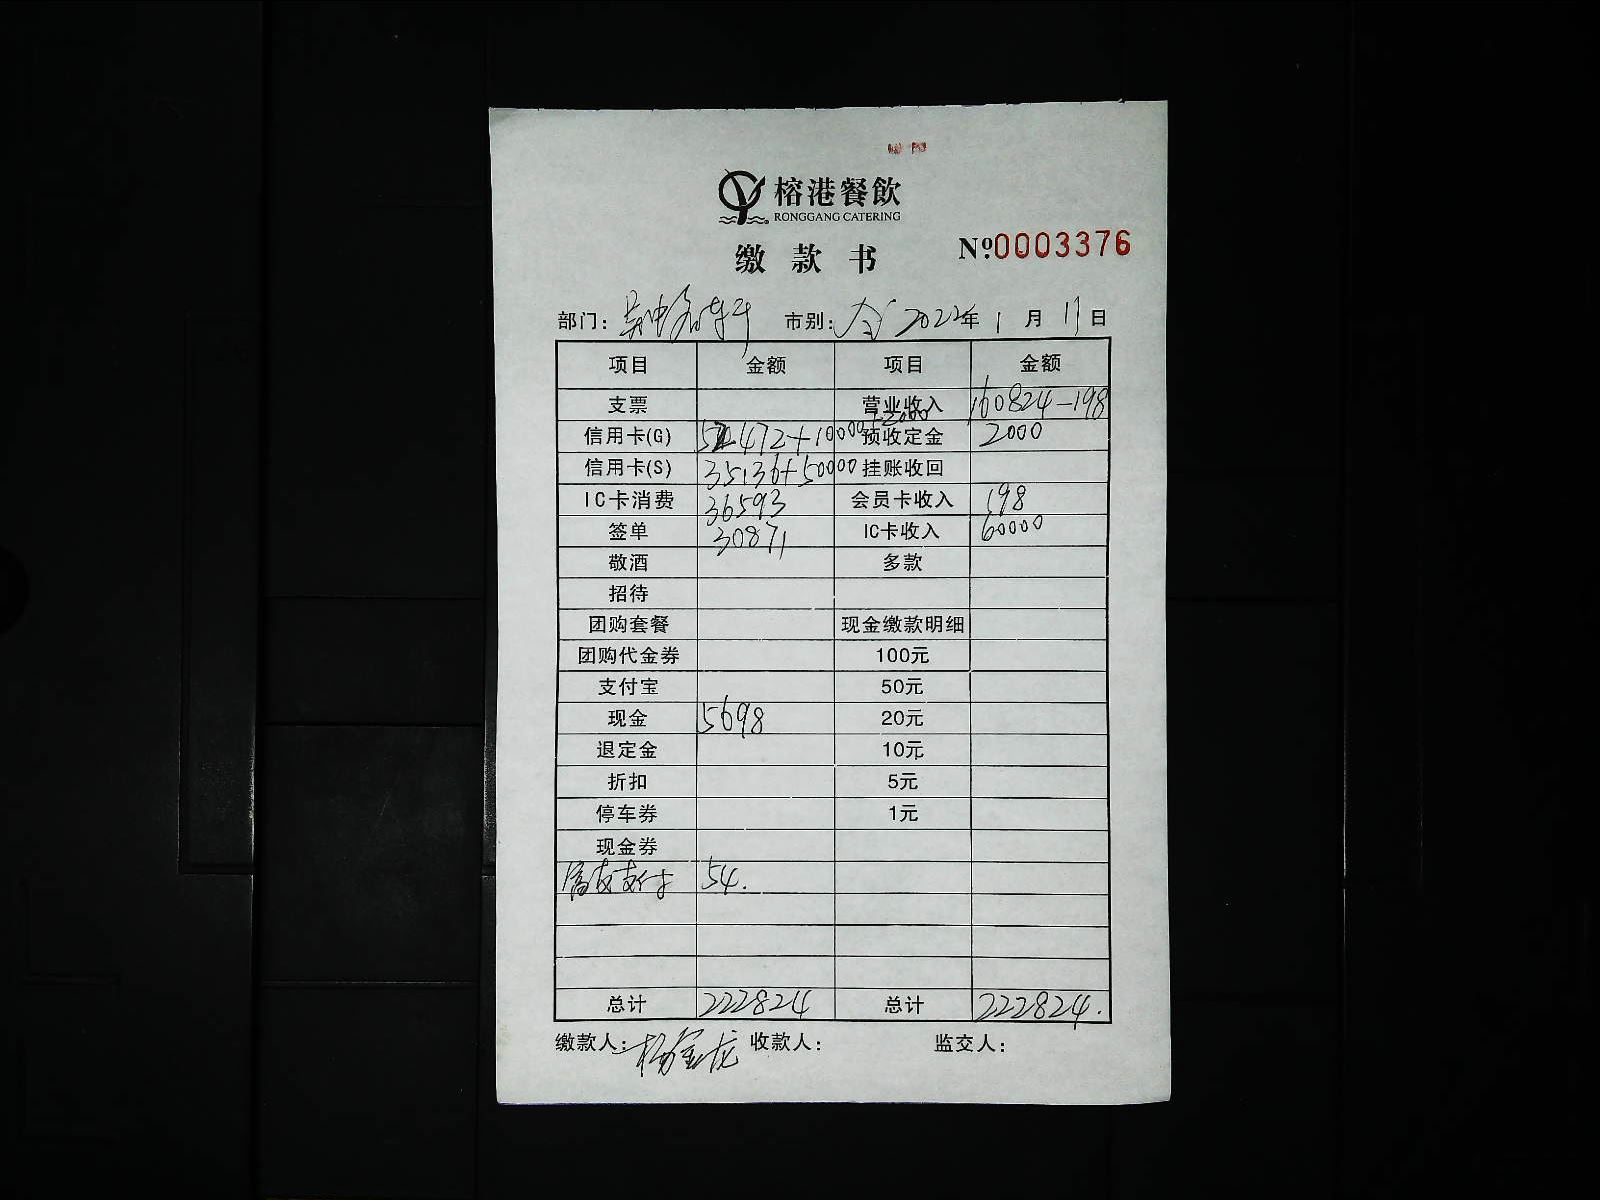 榕港餐飲
RONGGANG CATERING
缴款书 №0003376
部门: 吴中 市别: 2022年1月11日
项目 金额 项目 金额
支票 营业收入 160824-198
信用卡(G) 52472+10000+2000 预收定金 2000
信用卡(S) 35136+50000 挂账收回
IC卡消费 36593 会员卡收入 198
签单 30871 IC卡收入 60000
敬酒 多款
招待
团购套餐 现金缴款明细
团购代金券 100元
支付宝 50元
现金 5698 20元
退定金 10元
折扣 5元
停车券 1元
现金券
富友支付 54.
总计 222824 总计 222824.
缴款人: 杨金龙 收款人: 监交人: